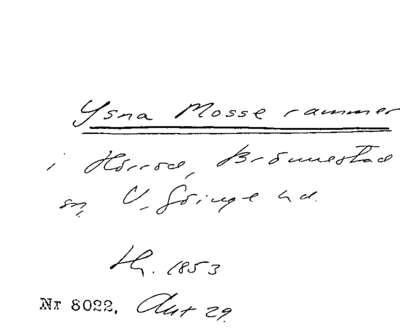 Ysna Mosse rammer
i Hörröd, Brönnestad
sn, V. Göinge hd.
th. 1853
Nr 8022. Akt 29.